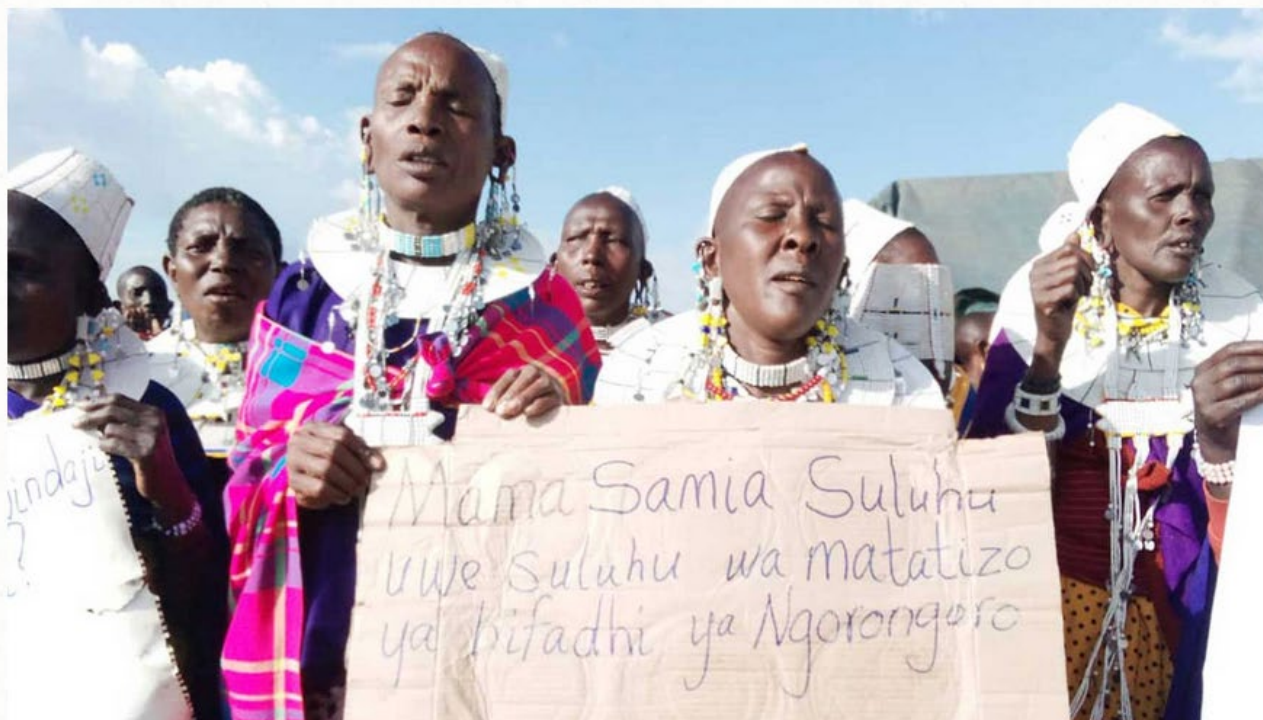 Mama Samia Suluhu
uwe Suluhu wa matatizo
ya hifadhi ya Ngorongoro
?